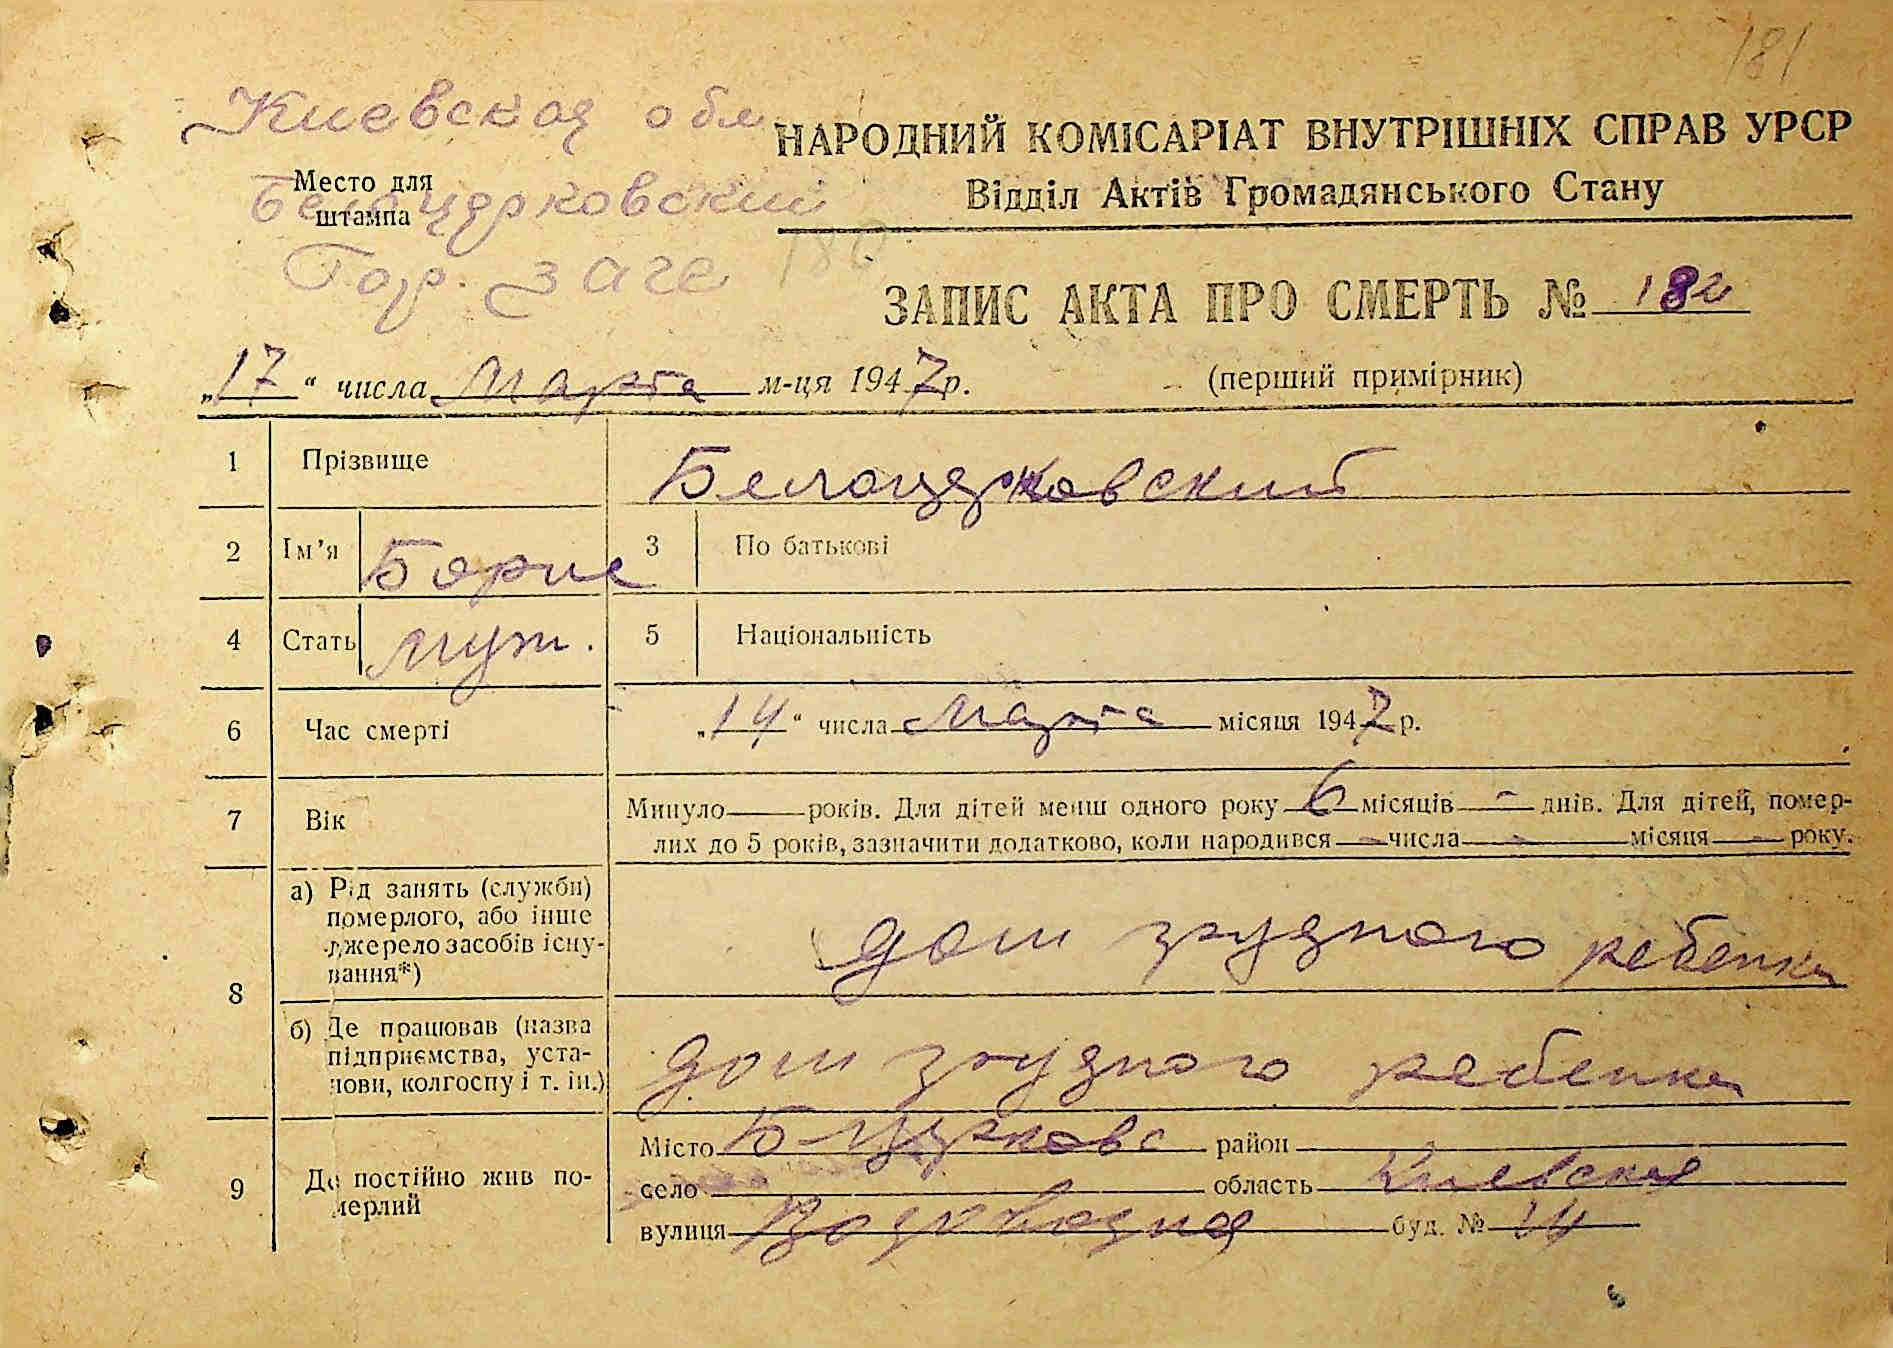 181
Киевская обл
НАРОДНИЙ КОМІСАРІАТ ВНУТРІШНІХ СПРАВ УРСР
Место для
штампа
Белоцерковский
Відділ Актів Громадянського Стану
Гор. загс
180
ЗАПИС АКТА ПРО СМЕРТЬ № 180
„17“ числа Марта м-ця 1947 р.
(перший примірник)
1 Прізвище Белоцерковский
2 Ім'я Борис 3 По батькові
4 Стать муж. 5 Національність
6 Час смерті „14“ числа Марта місяця 1947 р.
7 Вік Минуло — років. Для дітей менш одного року 6 місяців - днів. Для дітей, помер-
лих до 5 років, зазначити додатково, коли народився - числа - місяця - року.
8 а) Рід занять (служби)
померлого, або інше
джерело засобів існу-
вання*)
дом грудного ребенка
б) Де працював (назва
підприємства, уста-
нови, колгоспу і т. ін.)
дом грудного ребенка
9 Де постійно жив по-
мерлий
Місто Б церковь район
село область Киевская
вулиця буд. № 14